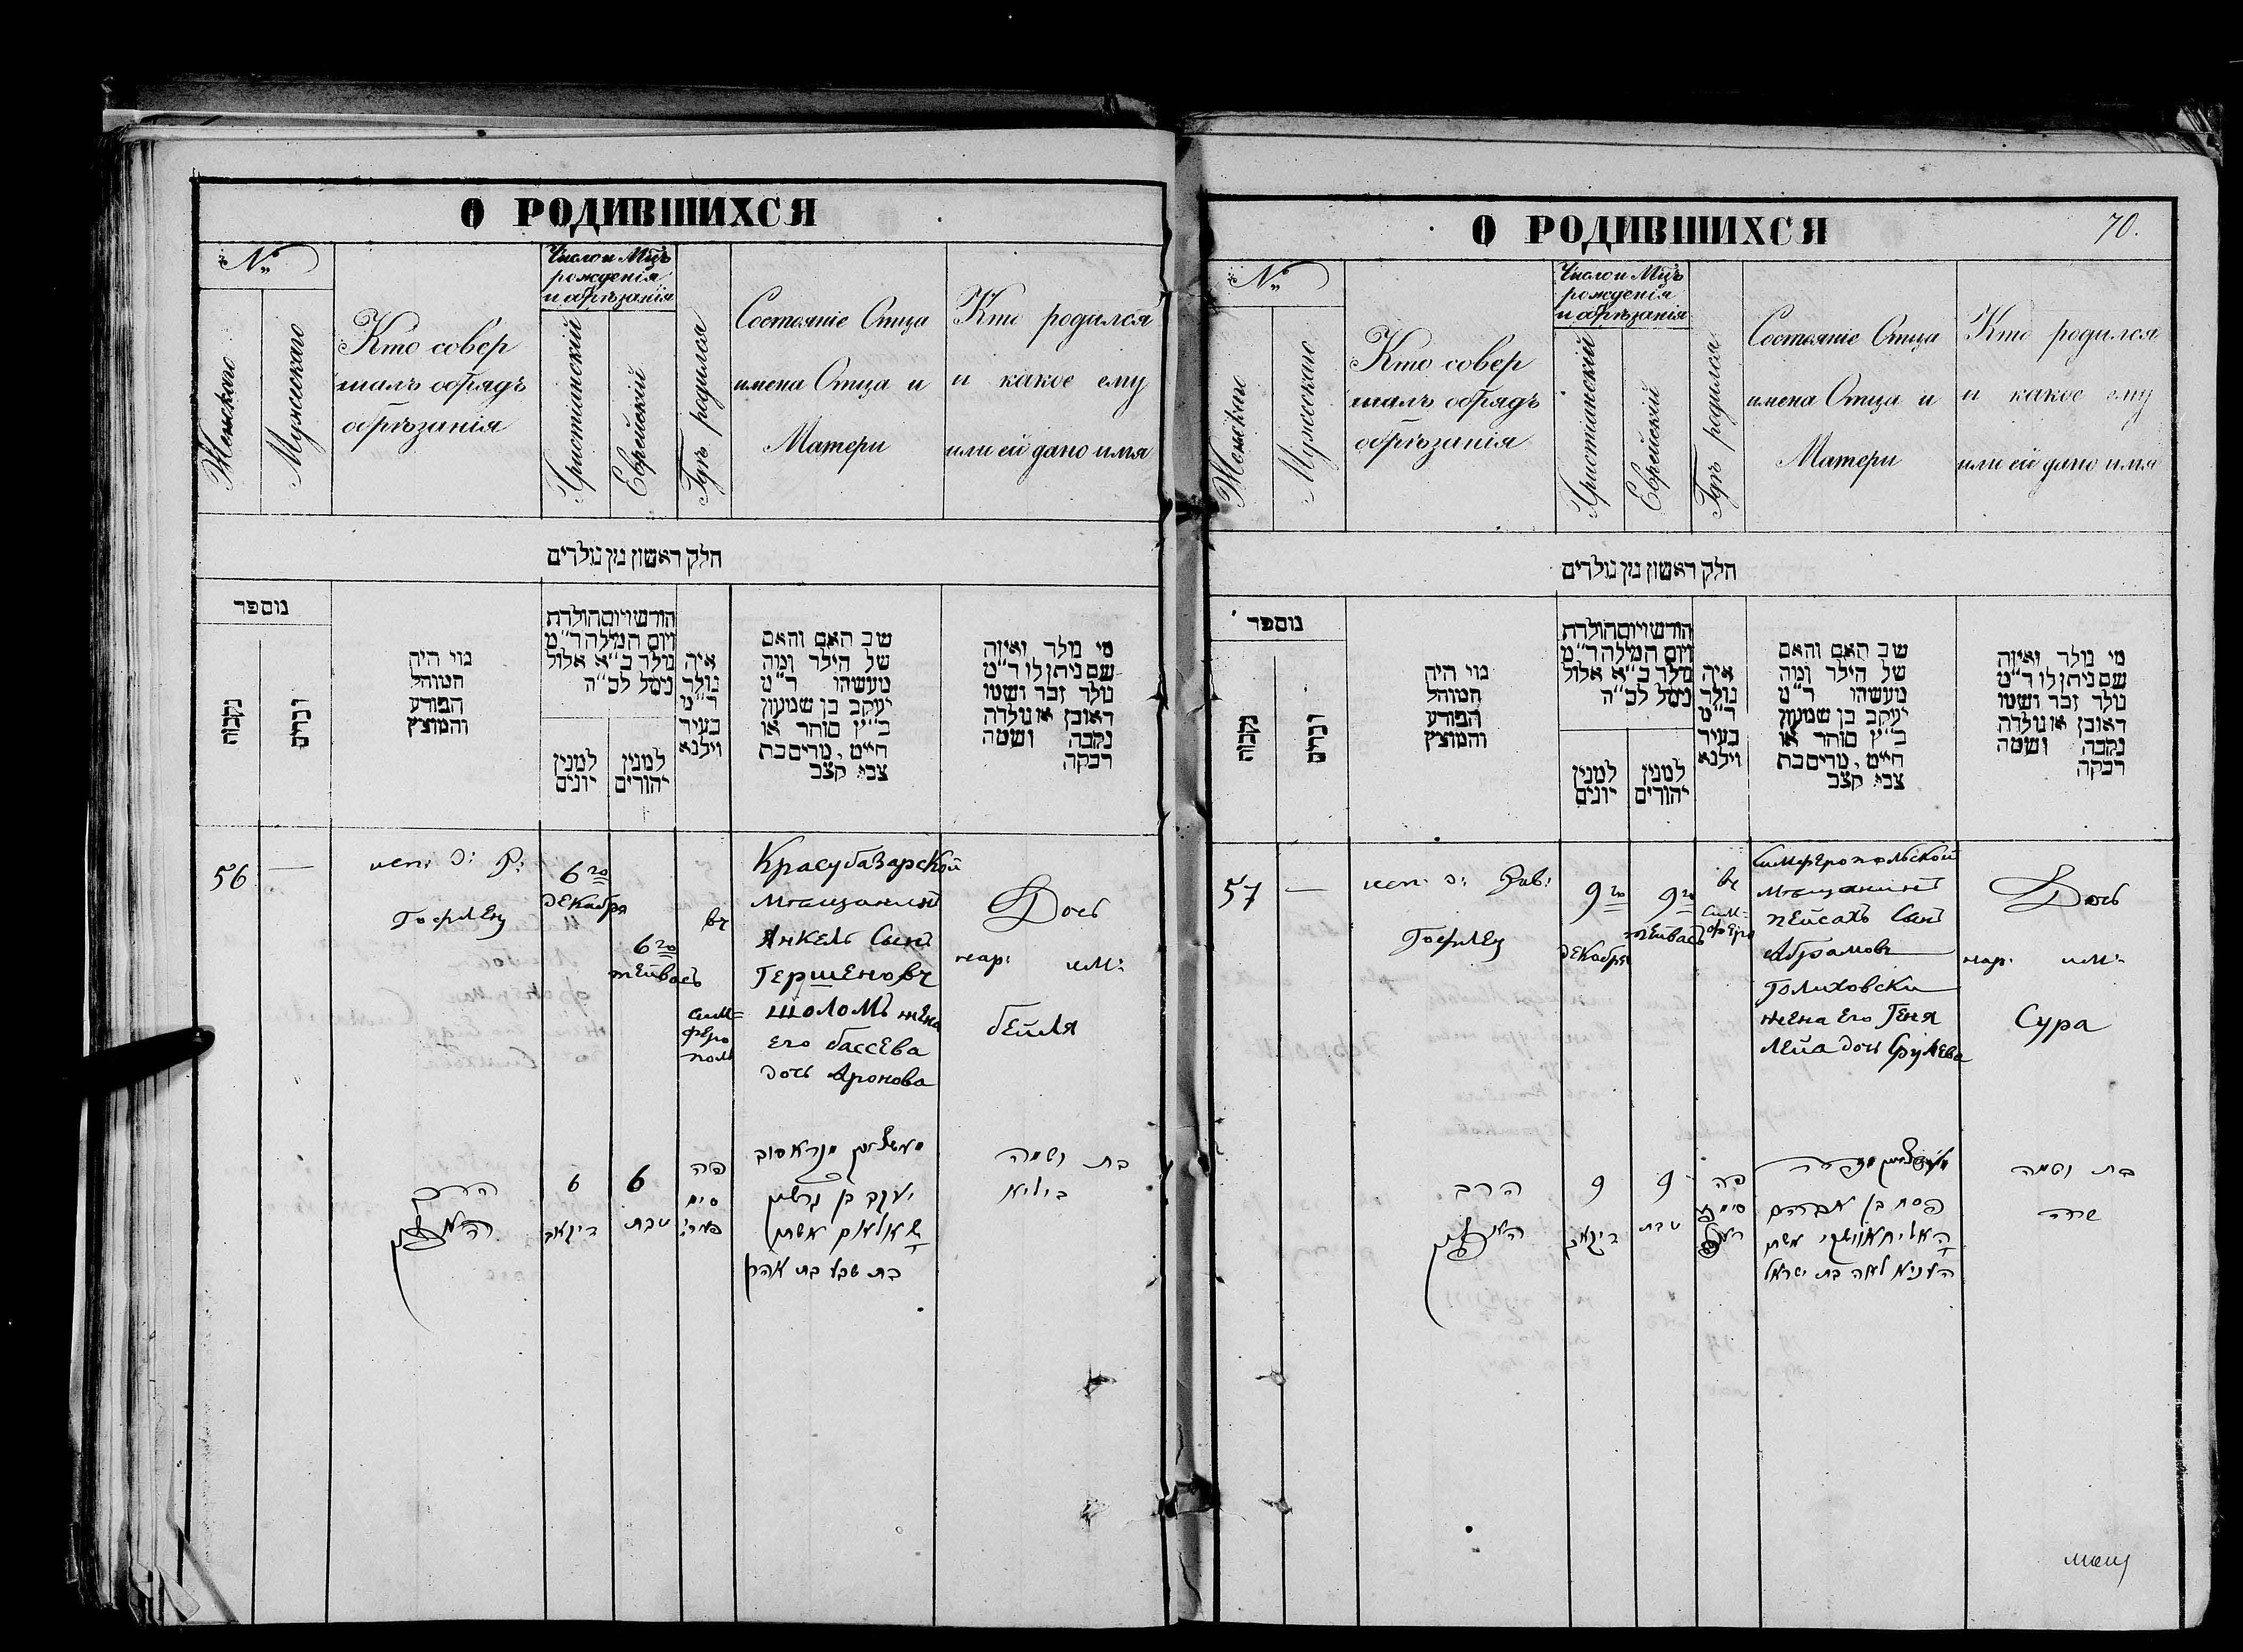 О РОДИВШИХСЯ
№
Женскаго
Мужескаго
Кто совер
шалъ обрядъ
обрѣзанія
Число и Мцъ
рожденія
и обрѣзанія
Христіанскій
Еврейскій
Гдѣ родился
Состояніе Отца
имена Отца и
Матери
Кто родился
и какое ему
или ей дано имя
חלק ראשון מן נולדים
מוספר
נקבות
זכרים
מוי היה
המוהל
הפורע
והמוצץ
חודש ויום הולדת
ויום המילה ד״מ
נולד כ״א אלול
נימל לכ״ה
למנין
יונים
למנין
יהודים
איה
נולד
ד״מ
בעיר
וילנא
שב האב והאם
של הילד ומה
מעשהו ד״מ
יעקב בן שמעון
כ״ץ סוחר או
חייט, מרים בת
צבי קצב
מי נולד ואיזה
שם ניתן לו ד״מ
נולד זכר ושמו
ראובן או נולדה
נקבה ושמה
רבקה
56
—
исп. д: Р:
Гофмец
6го
декабря
6го
тейвасъ
въ
сим=
феро
поль
Красубазарской
мѣщанинъ
Янкель Сынъ
Гершеновъ
Шоломъ жена
его бассева
дочь Аронова
Дочь
нар: им:
бейля
הרב
6
6
טבת
פה
סים
יעקב בן גרשון
שאלאם אשתו
בת שבע בת אהרן
בת ושמה
ביילא
О РОДИВШИХСЯ
70.
№
Женскаго
Мужескаго
Кто совер
шалъ обрядъ
обрѣзанія
Число и Мцъ
рожденія
и обрѣзанія
Христіанскій
Еврейскій
Гдѣ родился
Состояніе Отца
имена Отца и
Матери
Кто родился
и какое ему
или ей дано имя
חלק ראשון מן נולדים
מוספר
נקבות
זכרים
מוי היה
המוהל
הפורע
והמוצץ
חודש ויום הולדת
ויום המילה ד״מ
נולד כ״א אלול
נימל לכ״ה
למנין
יונים
למנין
יהודים
איה
נולד
ד״מ
בעיר
וילנא
שב האב והאם
של הילד ומה
מעשהו ד״מ
יעקב בן שמעון
כ״ץ סוחר או
חייט, מרים בת
צבי קצב
מי נולד ואיזה
שם ניתן לו ד״מ
נולד זכר ושמו
ראובן או נולדה
נקבה ושמה
רבקה
57
—
исп. д: Рав:
Гофмец
9го
декабря
9го
тейвасъ
въ
сим=
феро
Симферопольской
мѣщанинъ
пейсахъ Сынъ
Абрамовъ
Голиховски
жена его Геня
Лейа дочь Срулева
Дочь
нар: им:
Сура
הרב
9
9
טבת
פה
פסח בן אברהם
אשתו
העניא לאה בת ישראל
בת ושמה
שרה